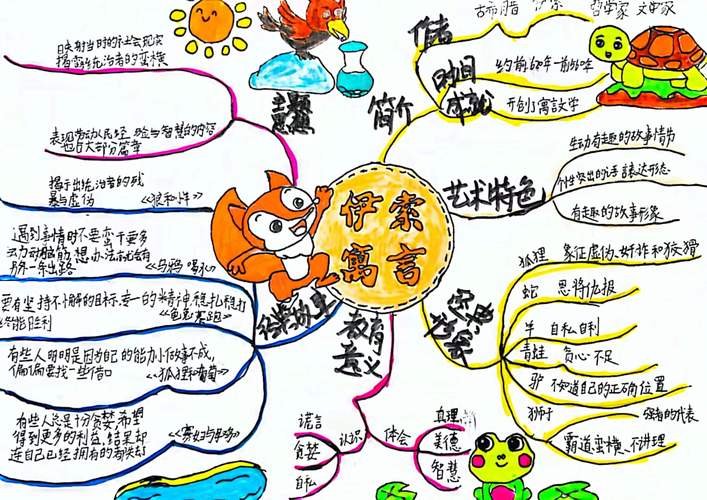 伊索
寓言
简介
作者
古希腊
伊索
哲学家 文学家
时间
约前
成就
开创了寓言文学
艺术特色
生动有趣的故事情节
有趣的故事形象
经典
形象
狐狸 象征虚伪、奸诈和狡猾
蛇 恩将仇报
羊 自私自利
青蛙 贪心不足
驴 不知道自己的正确位置
狮子
强者的代表
霸道蛮横、不讲理
教育
意义
认识
谎言
贪婪
自私
体会
真理
美德
智慧
经典故事
遇到事情时不要
动脑筋,想办法
另外一条出路
《乌鸦喝水》
要有坚持不懈的目标,专一的精神,稳扎稳打
终能胜利
《龟兔赛跑》
有些人明明是因为自己的能力小做事不成,
偏偏要找一些借口
《狐狸和葡萄》
有些人总是十分贪婪,希望
得到更多的利益,结果却
连自己已经拥有的都失去
《寡妇与母鸡》
主题
思想
反映当时的社会现实
揭露统治者的蛮横
表现劳动人民经验与智慧的内容
也占大部分篇章
揭示出统治者的残
暴与虚伪
《狼和小羊》